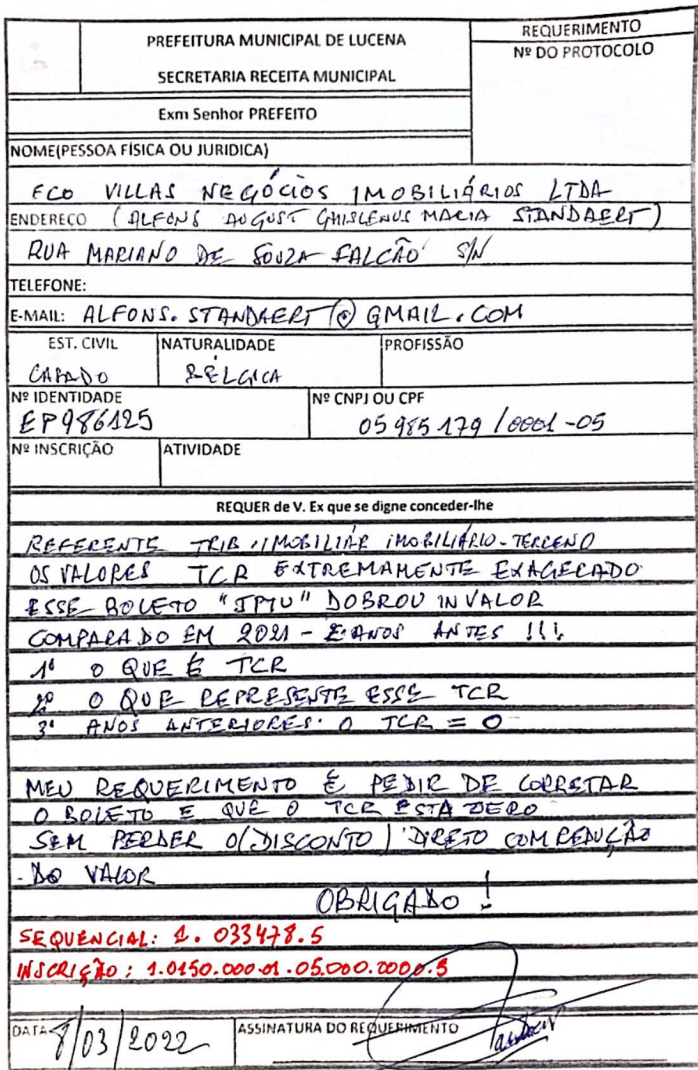 PREFEITURA MUNICIPAL DE LUCENA
SECRETARIA RECEITA MUNICIPAL
REQUERIMENTO
Nº DO PROTOCOLO
Exm Senhor PREFEITO
NOME(PESSOA FÍSICA OU JURIDICA)
ECO VILLAS NEGÓCIOS IMOBILIÁRIOS LTDA
ENDEREÇO (ALFONS AUGUST GHISLENUS MARIA STANDAERT)
RUA MARIANO DE SOUZA FALCÃO S/N
TELEFONE:
E-MAIL: ALFONS.STANDAERT@GMAIL.COM
EST. CIVIL NATURALIDADE PROFISSÃO
CASADO BÉLGICA
Nº IDENTIDADE Nº CNPJ OU CPF
EP986125 05985179/0001-05
Nº INSCRIÇÃO ATIVIDADE
REQUER de V. Ex que se digne conceder-lhe
REFERENTE TRIB. IMOBILIÁR IMOBILIÁRIO-TERRENO
OS VALORES TCR EXTREMAMENTE EXAGERADO
ESSE BOLETO "IPTU" DOBROU IN VALOR
COMPARADO EM 2021 - E ANOS ANTES !!!
1º O QUE É TCR
2º O QUE REPRESENTE ESSE TCR
3º ANOS ANTERIORES O TCR = 0
MEU REQUERIMENTO É PEDIR DE CORRETAR
O BOLETO E QUE O TCR ESTA ZERO
SEM PERDER O (DISCONTO) DIRETO COM REDUÇÃO
DO VALOR
OBRIGADO !
SEQUENCIAL: 1.033478.5
INSCRIÇÃO: 1.0150.000.01.05.000.0000.5
DATA 8/03/2022 ASSINATURA DO REQUERIMENTO